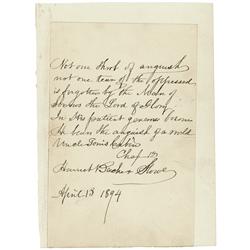 Not one throb of anguish
not one tear of the oppressed
is forgotten by the Man of
Sorrows the Lord of Glory
In His patient generous bosom
He bears the anguish of a world
Uncle Tom's Cabin
Chap
Harriet Beecher Stowe
April 13 1894